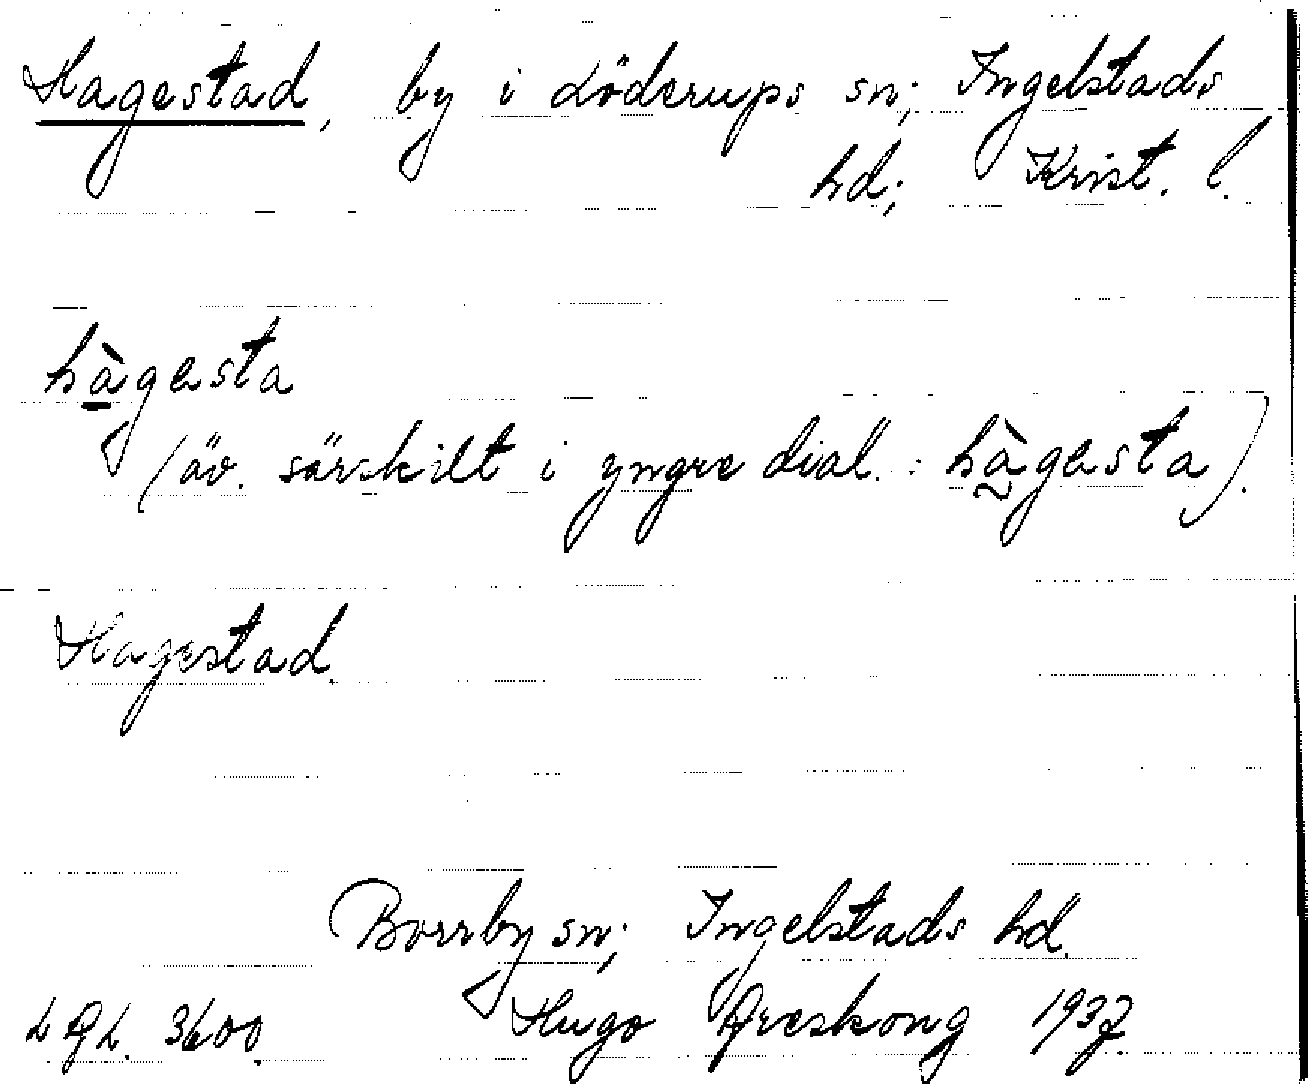 Hagestad, by i Löderups sn; Ingelstads
hd; Krist. l.
hàgesta
(äv. särskilt i yngre dial. : hàgesta).
Hagestad.
Borrby sn; Ingelstads hd.
Hugo Areskoug 1937
3600.